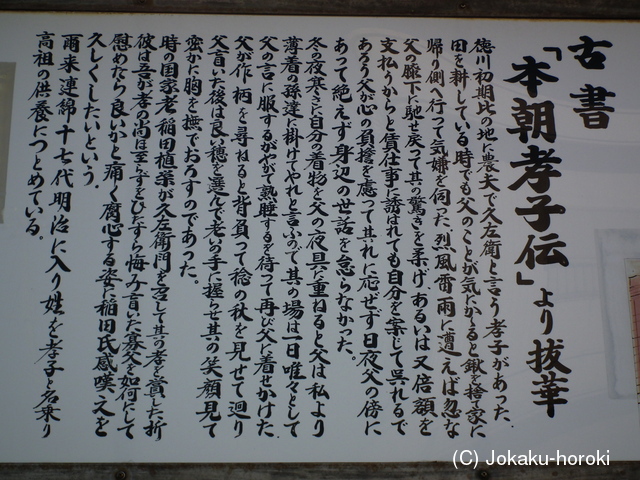 古書
「本朝孝子伝」より抜萃
徳川初期此の地に農夫で久左衛と言う孝子があった.
田を耕している時でも父のことが気にかゝると鍬を捨て家に
帰り側へ行って気嫌を伺った.烈風雷雨に遭えば忽な
父の膝下に馳せ戻って其の驚きを柔げあるいは又倍額を
支払うからと賃仕事に誘はれても自分を案じて呉れるで
あろう父が心の負擔を慮って其れに応ぜず日夜父の傍に
あって絶えず身辺の世話を怠らなかった。
冬の夜寒さに自分の着物を父の夜具に重ねると父は私より
薄着の孫達に掛けてやれと言ふので其の場は一旦唯々として
父の言に服するがやがて熟睡するを待って再び父に着せかけた.
父が作柄を尋ねると背負って稔の秋を見せて廻り
父盲いた後は良い穂を選んで老いの手に握らせ其の笑顔見て
密かに胸を撫でおろすのであった。
時の国家老稲田植栄が久左衛門を召して其の孝を賞した折
彼は吾が孝の尚ほ至らずをひたすら悔み盲いた寡父を如何にして
慰めたら良いかと痛く腐心する姿に稲田氏感嘆え文を
久しくしたいという.
爾来連綿十七代明治に入り姓を孝子と名乗り
高祖の供養につとめている。
(C) Jokaku-horoki